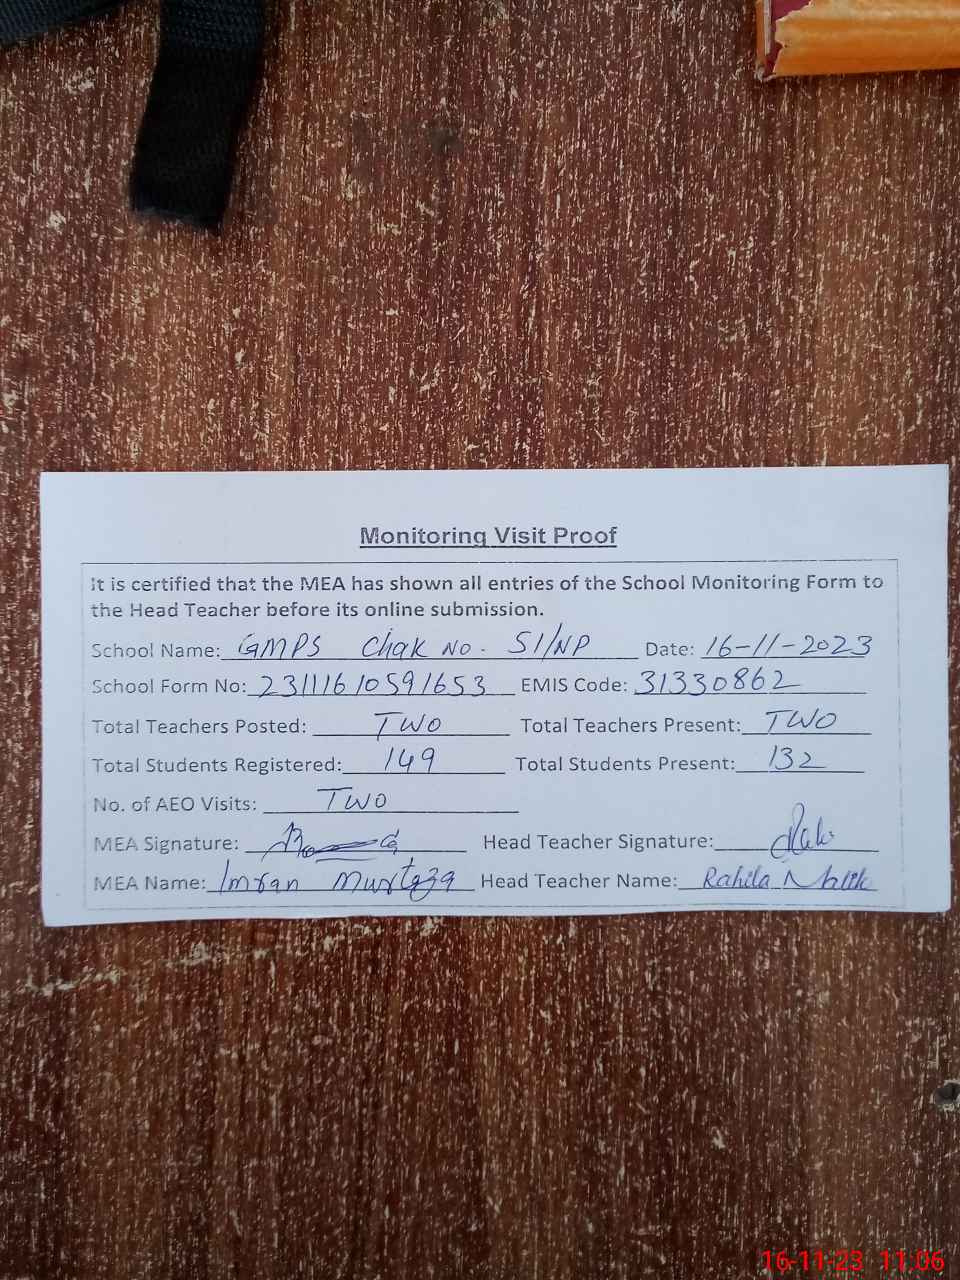 Monitoring Visit Proof
It is certified that the MEA has shown all entries of the School Monitoring Form to
the Head Teacher before its online submission.
School Name: GMPS Chak No. 51/NP Date: 16-11-2023
School Form No: 23111610591653 EMIS Code: 31330862
Total Teachers Posted: TWO Total Teachers Present: TWO
Total Students Registered: 149 Total Students Present: 132
No. of AEO Visits: TWO
MEA Signature: Head Teacher Signature:
MEA Name: Imran Murtaza Head Teacher Name: Rahila Malik
16-11-23 11:06